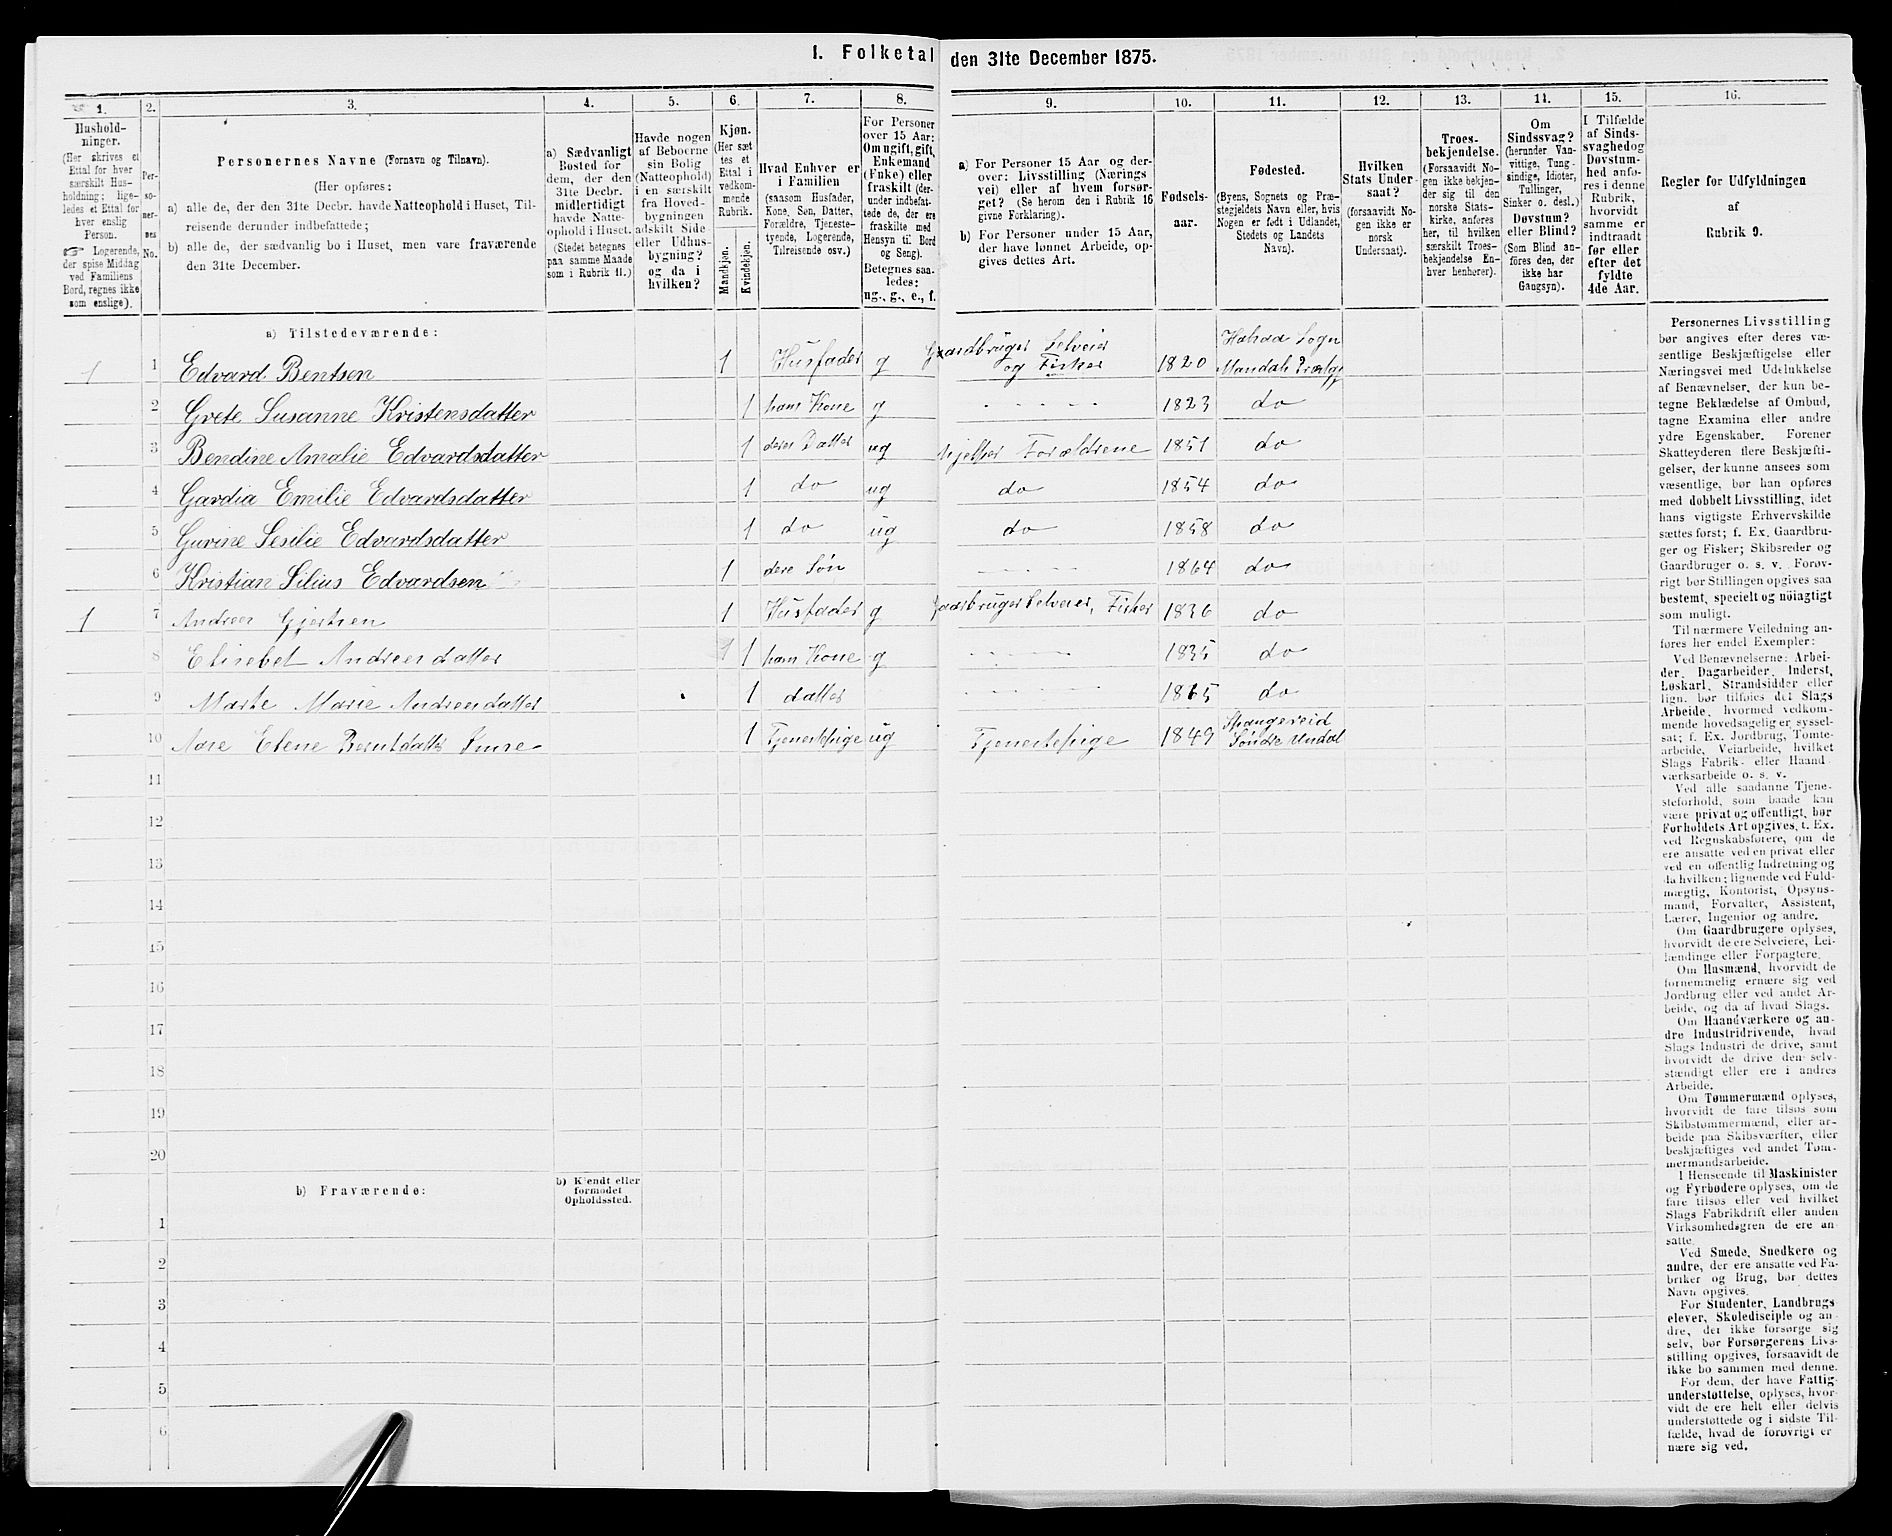 1. Folketal den 31te December 1875.
1.
Hushold-
ninger.
(Her skrives et
Ettal for hver
særskilt Hus-
holdning; lige-
ledes et Ettal for
hver enslig
Person.
☞ Logerende,
der spise Middag
ved Familiens
Bord, regnes ikke
som enslige).
2.
Per-
so-
ner-
nes
No.
3.
Personernes Navne (Fornavn og Tilnavn).
(Her opføres:
a) alle de, der den 31te Decbr. havde Natteophold i Huset, Til-
reisende derunder indbefattede;
b) alle de, der sædvanlig bo i Huset, men vare fraværende
den 31te December.
4.
a) Sædvanligt
Bosted for
dem, der den
31te Decbr.
midlertidigt
havde Natte-
ophold i Huset.
(Stedet betegnes
paa samme Maade
som i Rubrik 11.)
5.
Havde nogen
af Beboerne
sin Bolig
(Natteophold)
i en særskilt
fra Hoved-
bygningen
adskilt Side
eller Udhus-
bygning?
og da i
hvilken?
6.
Kjøn.
(Her sæt
tes et
Ettal i
vedkom-
mende
Rubrik.
Mandkjøn.
Kvindekjøn.
7.
Hvad Enhver er
i Familien
(saasom Husfader,
Kone, Søn, Datter,
Forældre, Tjeneste-
tyende, Logerende,
Tilreisende osv.)
8.
For Personer
over 15 Aar:
Om ugift, gift,
Enkemand
(Enke) eller
fraskilt (der-
under indbefat-
tede de, der ere
fraskilte med
Hensyn til Bord
og Seng).
Betegnes saa-
ledes:
ug., g., e., f.
9.
a) For Personer 15 Aar og der-
over: Livsstilling (Nærings
vei) eller af hvem forsør-
get? (Se herom den i Rubrik 16
givne Forklaring).
b) For Personer under 15 Aar,
der have lønnet Arbeide, op-
gives dettes Art.
10.
Fødsels-
aar.
11.
Fødested.
(Byens, Sognets og Præ-
stegjeldets Navn eller, hvis
Nogen er født i Udlandet,
Stedets og Landets
Navn).
12.
Hvilken
Stats Under-
saat?
(forsaavidt No-
gen ikke er
norsk
Undersaat).
13.
Troes-
bekjendelse.
(Forsaavidt No-
gen ikke bekjen-
der sig til den
norske Stats-
kirke, anføres
her, til hvilken
særskilt Troes-
bekjendelse En-
hver henhører).
14.
Om
Sindssvag?
(herunder Van-
vittige, Tung-
sindige, Idioter,
Tullinger,
Sinker o. desl.)
Døvstum?
eller Blind?
(Som Blind an-
føres den, der
ikke har
Gangsyn).
15.
I Tilfælde
af Sinds-
svaghed og
Døvstum-
hed anfø-
res i denne
Rubrik,
hvorvidt
samme er
indtraadt
før eller
efter det
fyldte
4de Aar.
16.
Regler for Udfyldningen
af
Rubrik 9.
a) Tilstedeværende:
1 1 Edvard Bentsen 1 Husfader g Gaardbruger Selveier
og Fisker 1820 Halsaa Sogn
Mandals Præstgj
2 Grete Susanne Kristensdatter 1 hans Kone g - - - - - 1823 do
3 Bendine Amalie Edvardsdatter 1 deres Datter ug hjelper Forældrene 1851 do
4 Gardia Emilie Edvardsdatter 1 do ug do 1854 do
5 Gurine Sesilie Edvardsdatter 1 do ug do 1858 do
6 Kristian Silius Edvardsen 1 dere Søn - - - - - 1864 do
1 7 Andreas Gjertsen 1 Husfader g Gaardbruger Selveier, Fisker 1836 do
8 Elisebet Andreasdatter 1 hans Kone g - - - - - 1835 do
9 Marte Marie Andreasdatter 1 datter - - - - - 1865 do
10 Aase Elene Berntdatter 1 Tjenestepige ug Tjenestepige 1849 Spangereid
Søndre Undal
11
12
13
14
15
16
17
18
19
20
b) Fraværende:
b) Kjendt eller
formodet
Opholdssted.
1
2
3
4
5
6
Personernes Livsstilling
bør angives efter deres væ-
sentlige Beskjæftigelse eller
Næringsvei med Udelukkelse
af Benævnelser, der kun be-
tegne Beklædelse af Ombud,
tagne Examina eller andre
ydre Egenskaber. Forener
Skatteyderen flere Beskjæfti-
gelser, der kunne ansees som
væsentlige, bør han opføres
med dobbelt Livsstilling, idet
hans vigtigste Erhvervskilde
sættes først; f. Ex. Gaardbru-
ger og Fisker; Skibsreder og
Gaardbruger o. s. v. Forøv-
rigt bør Stillingen opgives saa
bestemt, specielt og nøiagtigt
som muligt.
Til nærmere Veiledning an-
føres her endel Exempler:
Ved Benævnelserne: Arbei-
der, Dagarbeider, Inderst,
Løskarl, Strandsidder eller
lign. bør tilføies det Slags
Arbeide, hvormed vedkom-
mende hovedsagelig er syssel-
sat; f. Ex. Jordbrug, Tomte-
arbeide, Veiarbeide, hvilket
Slags Fabrik- eller Haand
værksarbeide o. s. v.
Ved alle saadanne Tjene-
steforhold, som baade kan
være privat og offentligt, bør
Forholdets Art opgives, t. Ex.
ved Regnskabsførere, om de
ere ansatte ved en privat eller
ved en offentlig Indretning og
da hvilken; lignende ved Fuld-
mægtig, Kontorist, Opsyns-
mand, Forvalter, Assistent,
Lærer, Ingeniør og andre.
Om Gaardbrugere oplyses,
hvorvidt de ere Selveiere, Lei-
lændinge eller Forpagtere.
Om Husmænd, hvorvidt de
fornemmelig ernære sig ved
Jordbrug eller ved andet Ar-
beide, og da af hvad Slags.
Om Haandværkere og an-
dre Industridrivende, hvad
Slags Industri de drive, samt
hvorvidt de drive den selv-
stændigt eller ere i andres
Arbeide.
Om Tømmermænd oplyses,
hvorvidt de fare tilsøs som
Skibstømmermænd, eller ar-
beide paa Skibsværfter, eller
beskjæftiges ved andet Tøm-
mermandsarbeide.
I Henseende til Maskinister
og Fyrbødere oplyses, om de
fare tilsøs eller ved hvilket
Slags Fabrikdrift eller anden
Virksomhedsgren de ere an-
satte.
Ved Smede, Snedkere og
andre, der ere ansatte ved Fa-
briker og Brug, bør dettes
Navn opgives.
For Studenter, Landbrugs
elever, Skoledisciple og an-
dre, der ikke forsørge sig
selv, bør Forsørgerens Livs-
stilling opgives, forsaavidt de
ikke bo sammen med denne.
For dem, der have Fattig-
understøttelse, oplyses, hvor-
vidt de ere helt eller delvis
understøttede og i sidste Til-
fælde, hvad de forøvrigt er
nære sig ved.